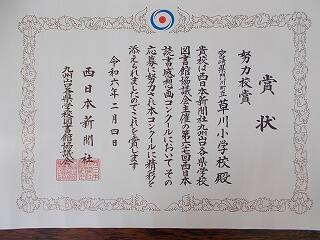 賞状
努力校賞
宮崎県門川町立
草川小学校殿
貴校は西日本新聞社九州山口各県学校
図書館協議会主催の第六七回西日本
読書感想画コンクールにおいてその
応募に努力され本コンクールに精彩を
添えられましたのでこれを賞します
令和六年二月四日
西日本新聞社
九州山口各県学校図書館協議会